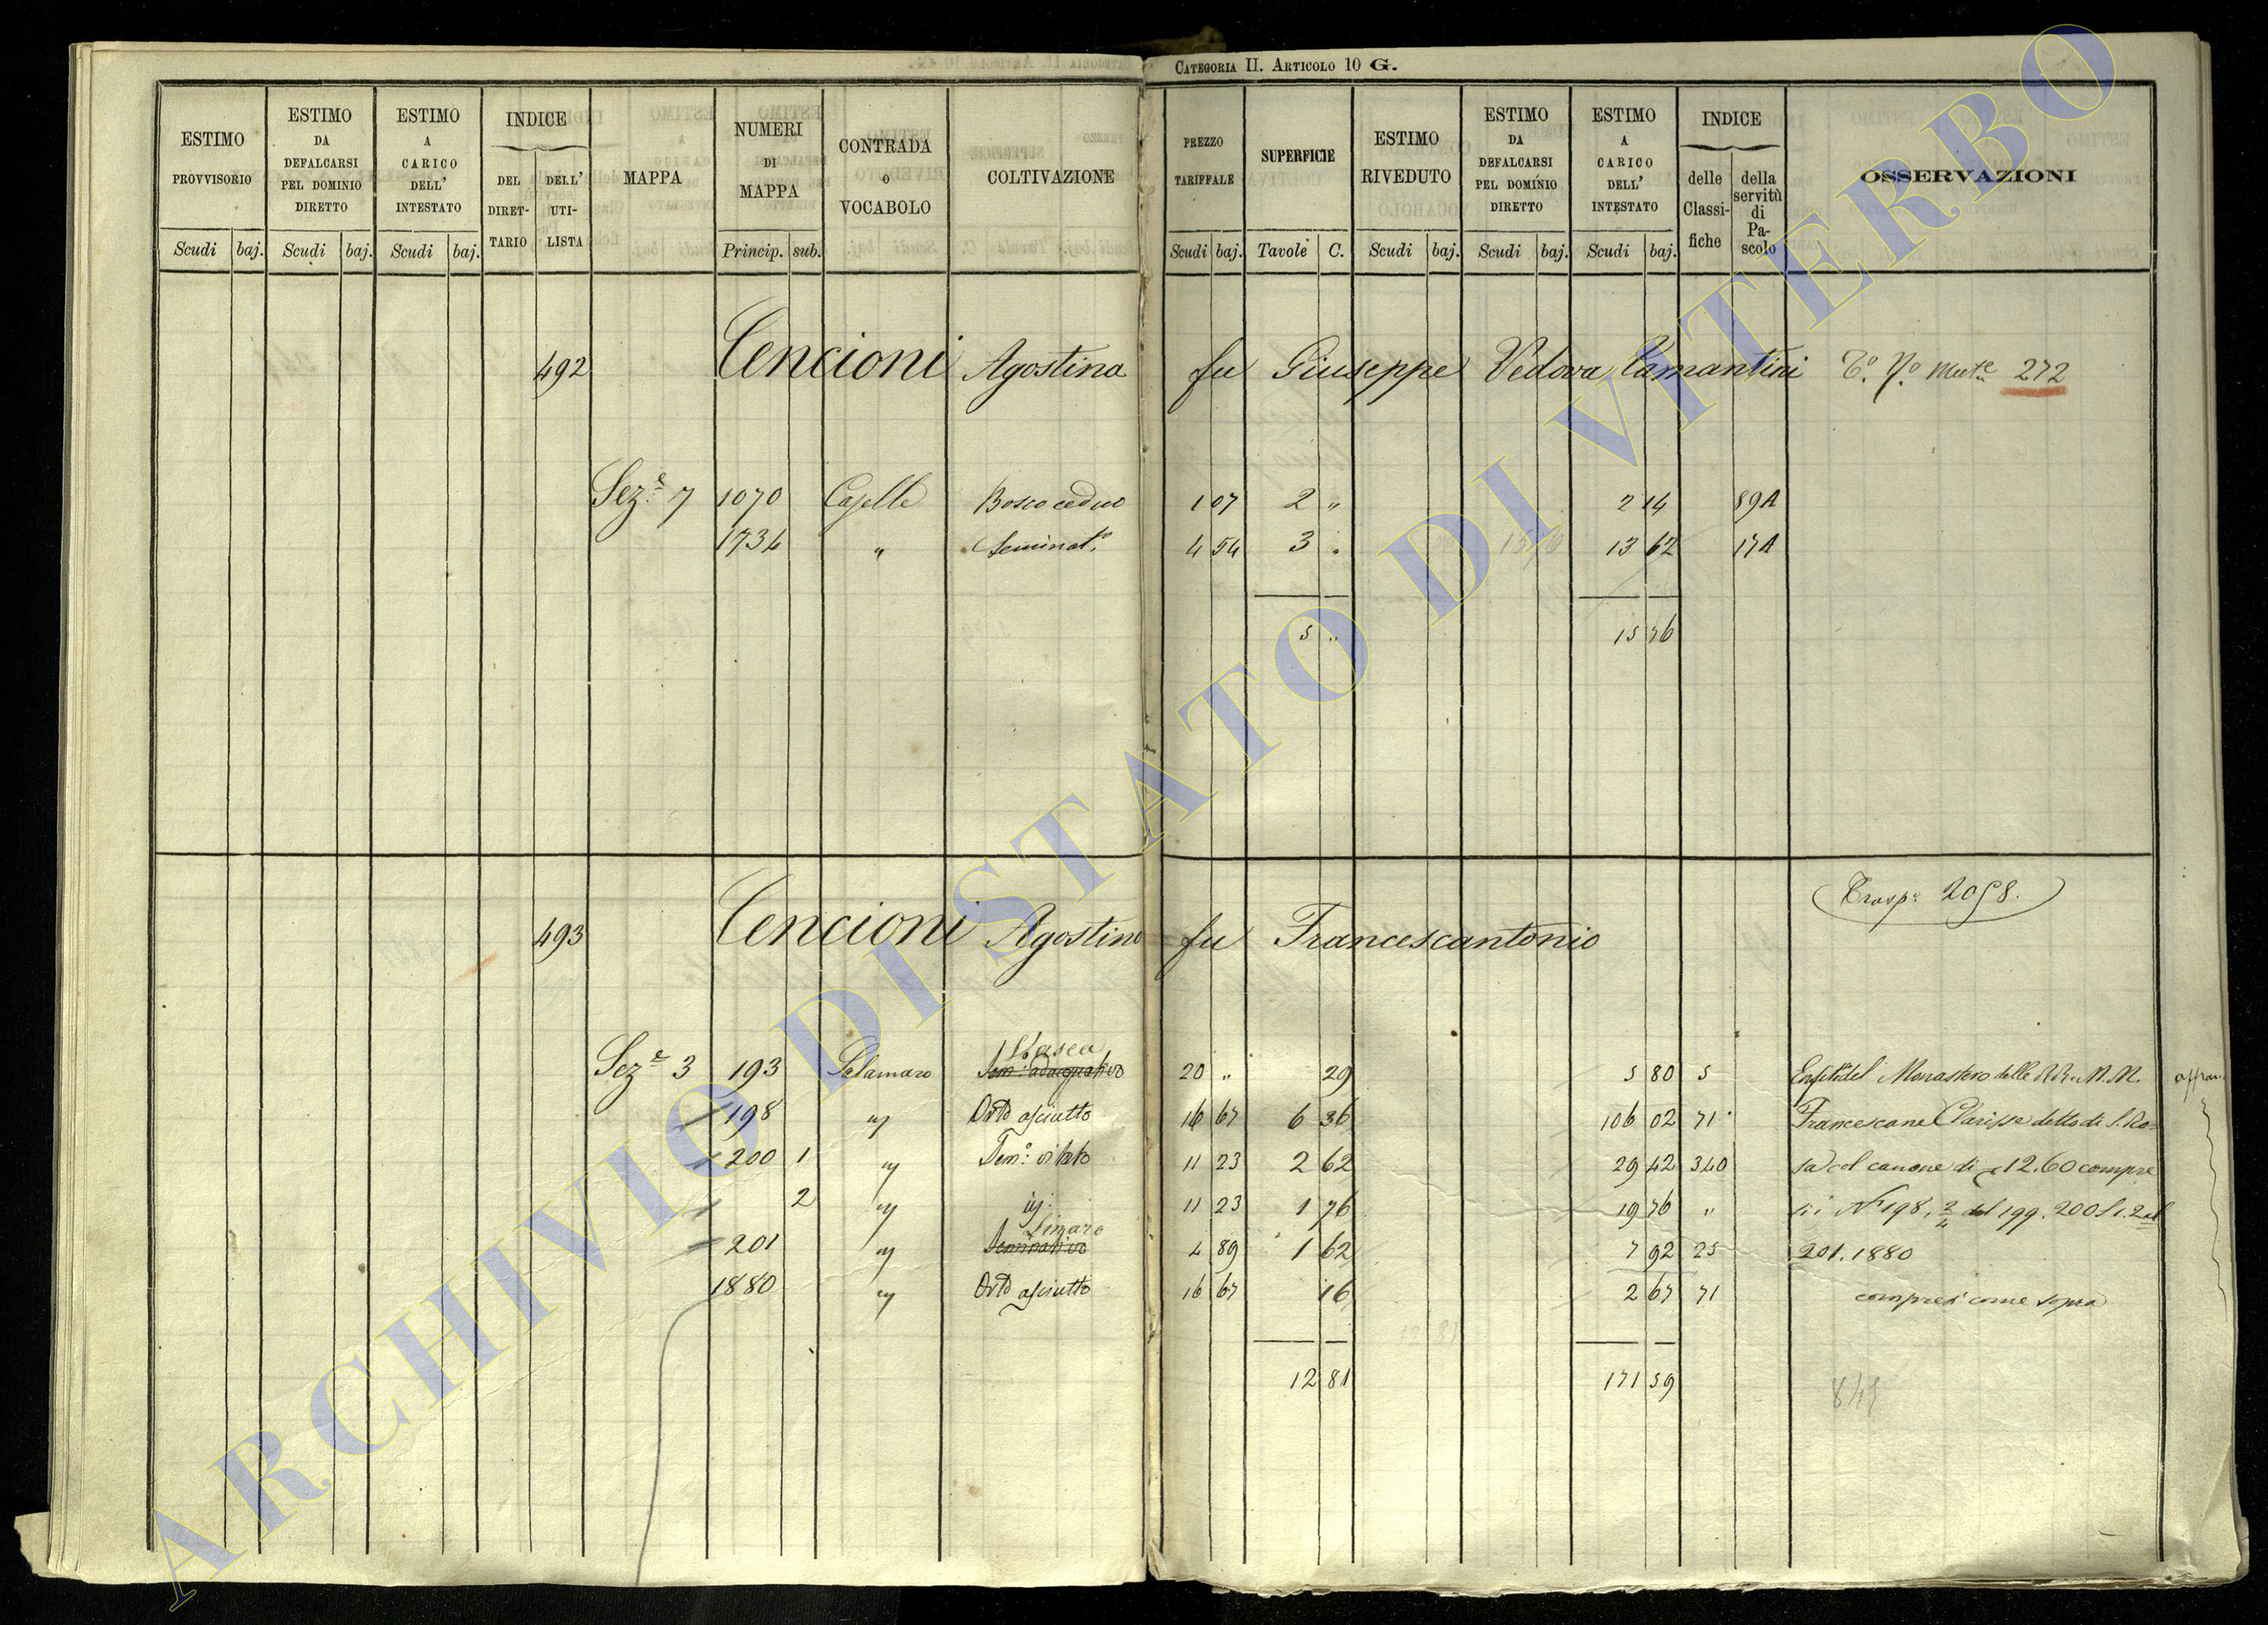 CATEGORIA II. ARTICOLO 10 G.
ESTIMO PROVVISORIO Scudi baj.
ESTIMO DA DEFALCARSI PEL DOMINIO DIRETTO Scudi baj.
ESTIMO A CARICO DELL' INTESTATO Scudi baj.
INDICE DEL DIRET-TARIO DELL' UTI-LISTA
MAPPA
NUMERI DI MAPPA Princip. sub.
CONTRADA O VOCABOLO
COLTIVAZIONE
PREZZO TARIFFALE Scudi baj.
SUPERFICIE Tavole C.
ESTIMO RIVEDUTO Scudi baj.
ESTIMO DA DEFALCARSI PEL DOMINIO DIRETTO Scudi baj.
ESTIMO A CARICO DELL' INTESTATO Scudi baj.
INDICE delle Classi-fiche della servitù di Pa-scolo
OSSERVAZIONI
492 Cencioni Agostina fu Giuseppe Vedova Tamantini 272
Sez.e 7 1070 Caselle Bosco ceduo 1 07 2 " 2 14 89A
1734 " Seminat.o 4 54 3 " 13 62 17A
5 " 15 76
Trasp. 2058.
493 Cencioni Agostino fu Francescantonio
Vasca
Sez.e 3 193 Salamaro Sem: adacquativo 20 " 29 5 80 5 Enfit. del Monastero delle RR. M.M. affran
198 " Orto asciutto 16 67 6 36 106 02 71 Francescane Clarisse detto di S. Ro=
200 1 " Sem.o vitato 11 23 2 62 29 42 340 sa col canone di 12.60 compre
2 " id. 11 23 1 76 19 76 " si i N. 198, 3/4 del 199. 200 S 1. 2 el
Limaro
201 " Seminativo 4 89 1 62 7 92 25 201. 1880
1880 " Orto asciutto 16 67 16 2 67 71 compresi come sopra
12 81 171 59
ARCHIVIO DI STATO DI VITERBO